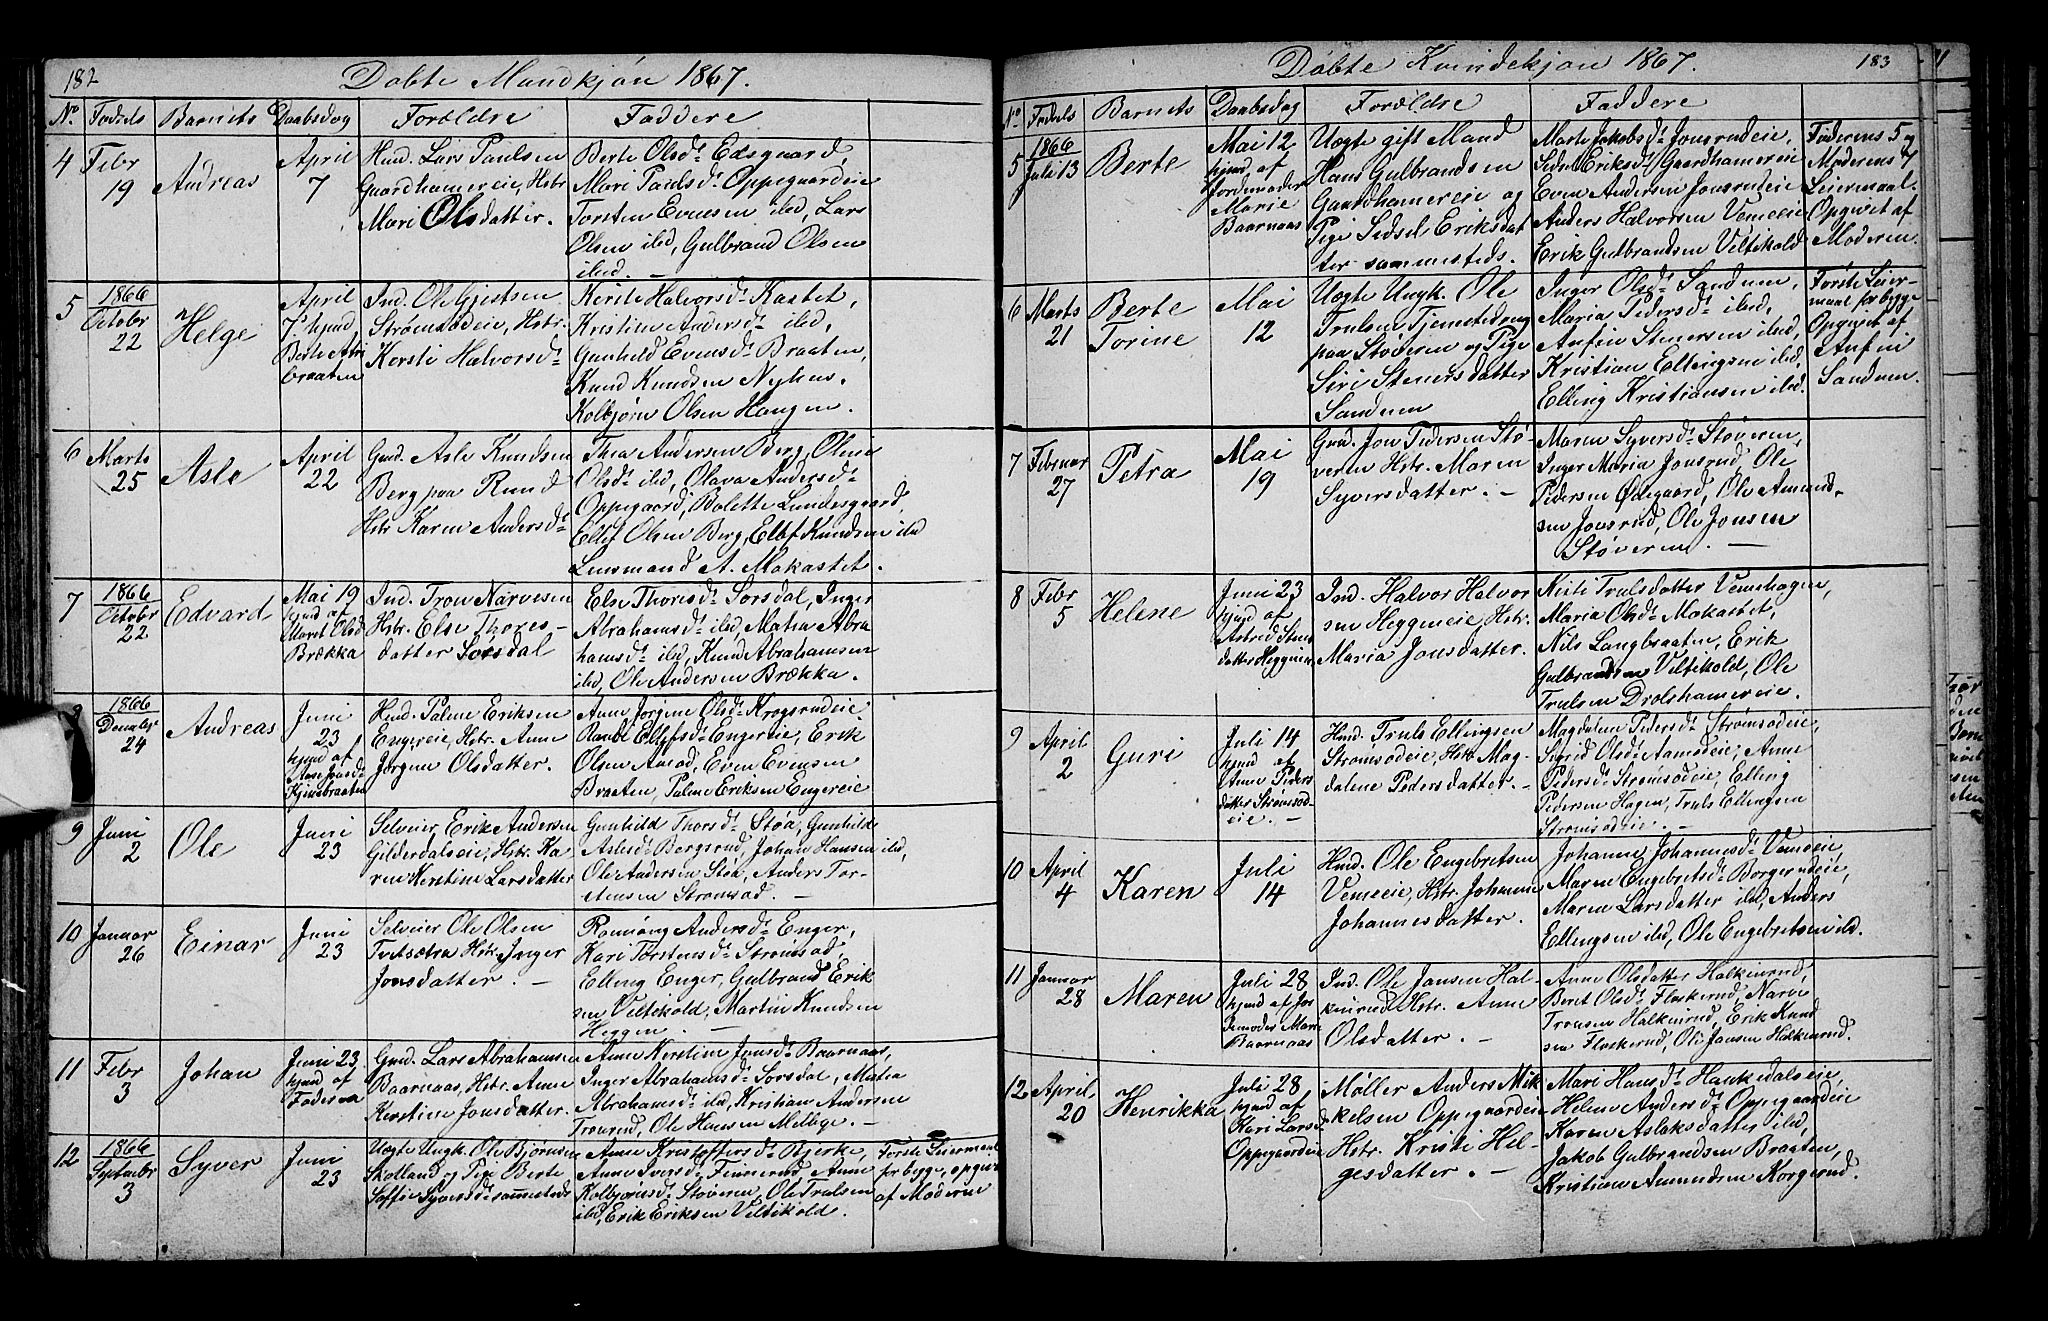 182
Döbte Mandkjön 1867.
No. Födsels Barnets Daabsdag Forældre Faddere
4 Febr 19
Andreas
April 7
Husd. Lars Paulsen
Gaardhamereie, Hstr.
Mari Olsdatter.
Berte Olsd. Edsgaard,
Mari Paulsd. Oppegaardeie
Torsten Evensen ibd, Lars
Olsen ibd, Gulbrand Olsen
ibid. —
5 1866 October 22
Helge
April
7 hjmd,
Berte
braaten
Ind. Ole Gjestsen
Strömsodeie, Hstr.
Kersti Halvorsd.
Kerste Halvorsd. Kastet,
Kristen Andersd. ibd,
Gunhild Evensd. Braaten,
Knud Knudsen Nyhus.
Kolbjörn Olsen Haugen.
6 Marts 25
Asle
April 22
Gmd. Asle Knudsen
Berg paa Rund
Hstr Karen Andersd.
Thea Andersen Berg, Olina
Olsd. ibd, Olava Andersd.
Oppegaard, Bolette Lundesgaard,
Ellef Olsen Berg, Ellef Knudsen ibd
Lensmand A. Mokastet.
7 1866 October 22
Edvard
Mai 19
hjmd af
Marit Olsd
Brækka
Ind. Tron Narvesen
Hstr. Else Thores-
datter Sorsdal
Else Thoresd. Sorsdal, Inger
Abrahamsd. ibd, Matea Abra
hamsd. ibd, Knud Abrahamsen
ibd, Ole Andersen Brækka.
8 1866 December 24
Andreas
Juni
23
hjmd af
Aase Jonsd.
Husd. Palme Eriksen
Engereie, Hstr. Anne
Jörgine Olsdatter.
Anne Jorgine Olsd. Krogsrudeie,
Ellefsd. Engereie, Erik
Olsen Amod, Even Evensen
Braaten, Palme Eriksen Engereie
9 Juni 2
Ole
Juni 23
Selveier, Erik Andersen
Gilderdalseie, Hstr. Ka
ren Kerstine Larsdatter
Gunhild Thorsd. Stöa, Gunhild
Aslesd. Bergsrud, Johan Hansen ibd,
Ole Andersen Stöa, Anders Tor-
stensen Strömsod. —
10 Januar 26
Einar
Juni 23
Selveier Ole Olsen
Hstr. Inger
Jonsdatter. —
Ronnoug Andersd. Enger,
Kari Torstensd. Strömsod,
Elling Enger, Gulbrand Erik
sen Viltikold, Martin Knudsen
Heggen. —
11 Febr 3
Johan
Juni 23,
hjmd af
Gmd. Lars Abrahamsen
Baarnaas, Hstr. Anne
Kerstine Jonsdatter.
Anne Kerstine Jonsd. Baarnaas,
Inger Abrahamsd. Sorsdal, Matea
Abrahamsd. ibd, Kristian Andersen
Tronrud, Ole Hansen Melbye. —
12 1866 September 3
Syver
Juni 23
Uægte Ungk. Ole Björnsen
Skotland og Pige Berte
Soffie Syversd. sammesteds
Anne Kristoffersd. Bjerke,
Anne Iversd. Finnerud, Anne
Kolbjörnsd. Stöveren, Ole Trulsen
ibd, Erik Eriksen Viltikold.
Förste Leiermaal
for begge, opgivet
af Moderen
Döbte Kvindekjön 1867.
183
No Födsels Barnets Daabsdag Forældre Faddere
5 1866 Juli 13
Berte
Mai 12
hjmd af
Jordemoder
Marie
Baarnaas
Uægte gift Mand
Hans Gulbrandsen
Gaardhamereie og
Pige Sidsel Eriksdat
ter sammesteds.
Marte Jakobsd. Jonsrudeie,
Sidsel Eriksd. Gaardhamereie
Even Andersen Jonsrudeie
Anders Halvorsen Vemeeie
Erik Gulbrandsen Viltikold
Faderens 5,
Moderens
Leiermaal.
Opgivet af
Moderen.
6 Marts 21
Berte
Torine
Mai 12
Uægte Ungk. Ole
Trulsen Tjenestedreng
paa Stöveren og Pige
Siri Stenersdatter
Sandum
Inger Olsd. Sandum,
Maria Pedersd. ibid,
Anfin Stenersen ibid,
Kristian Ellingsen ibd,
Elling Kristiansen ibd.
Förste Leier-
maal for begge
Opgivet af
Anfin
Sandum.
7 Februar 27
Petra
Mai 19
Gmd. Jon Pedersen Stö-
veren Hstr. Maren
Syversdatter. —
Maren Syversd. Stöveren,
Inger Maria Jonsrud, Ole
Pedersen Ödegaard, Ole Amund-
sen Jonsrud, Ole Jonsen
Stöveren. —
8 Febr 5
Helene
Juni 23
hjmd af
Astrid Sten
datter Heggeneie
Ind. Halvor Halvor
sen Heggeneie, Hstr.
Maria Jonsdatter.
Kisti Trulsdatter Vemehagen,
Maria Olsd. Mokastet,
Nils Langbraaten, Erik
Gulbrandsen Viltikold, Ole
Trulsen Drolshamereie.
9 April 2
Guri
Juli 14
hjmd af
Anne Peders
datter Strömsod-
eie. —
Husd. Truls Ellingsen
Strömsödeie, Hstr. Mag-
dalene Pedersdatter. —
Magdalene Pedersd. Strömsodeie,
Sigrid Olsd. Aamodeie, Anne
Pedersd. Strömsodeie, Elling
Pedersen Hagen, Truls Ellingsen
Strömsodeie. —
10 April 4
Karen
Juli 14
Husd. Ole Engebretsen
Vemeeie, Hstr. Johanne
Johannesdatter.
Johanne Johannesd. Vemeeie,
Maren Engebretsd. Borgerudeie,
Maren Larsdatter ibd, Anders
Ellingsen ibd, Ole Engebretsen ibd.
11 Januar 28
Maren
Juli 28
hjmd af Jor
demoder Marie
Baarnaas
Ind. Ole Jansen Hal-
kinrud Hstr. Anne
Olsdatter. —
Anne Olsdatter Halkinrud,
Berit Olsd. Flaskerud, Narve
Tronsen Halkinrud, Erik Knud
sen Flaskerud, Ole Jansen Halkinrud.
12 April 20
Henrikka
Juli 28
hjmd af
Kari Larsd
Oppegaardeie
Möller Anders Mik
kelsen Oppegaardeie
Hstr. Kristi Hel-
gesdatter. —
Mari Hansd. Haukedalseie,
Helene Andersd. Oppegaardeie
Karen Aslaksdatter ibd,
Jakob Gulbrandsen Braaten,
Kristian Amundsen Korgerud.